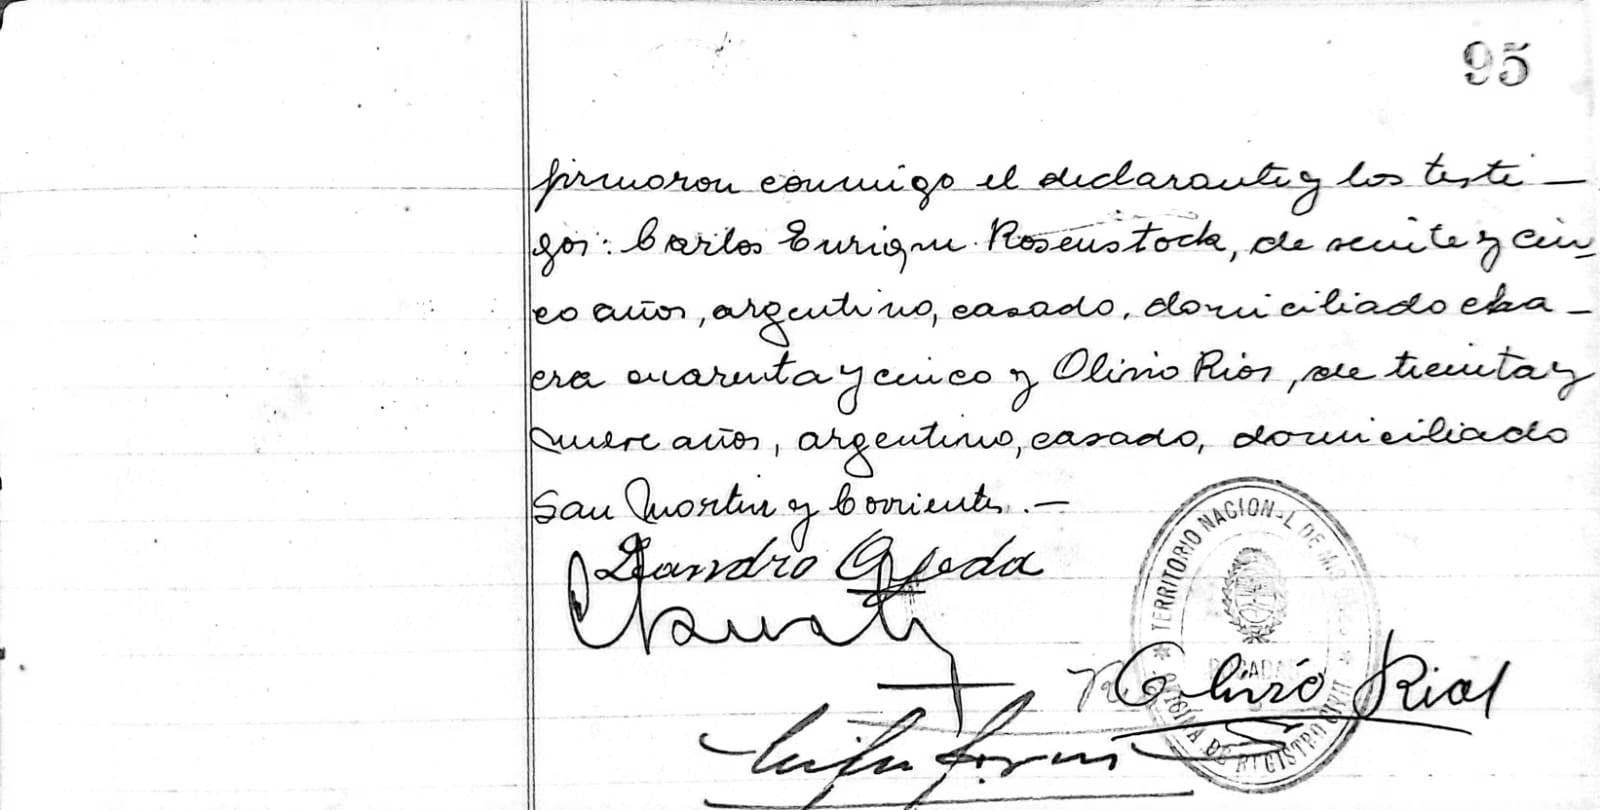 95
firmaron conmigo el declarante y los testi-
gos: Carlos Enrique Rosenstock, de veinte y cin-
co años, argentino, casado, domiciliado cha-
cra cuarenta y cinco y Olirio Rios, de treinta y
nueve años, argentino, casado, domiciliado
San Martin y Corrientes.-
Leandro Ojeda
TERRITORIO NACIONAL DE
OFICINA DE REGISTRO CIVIL